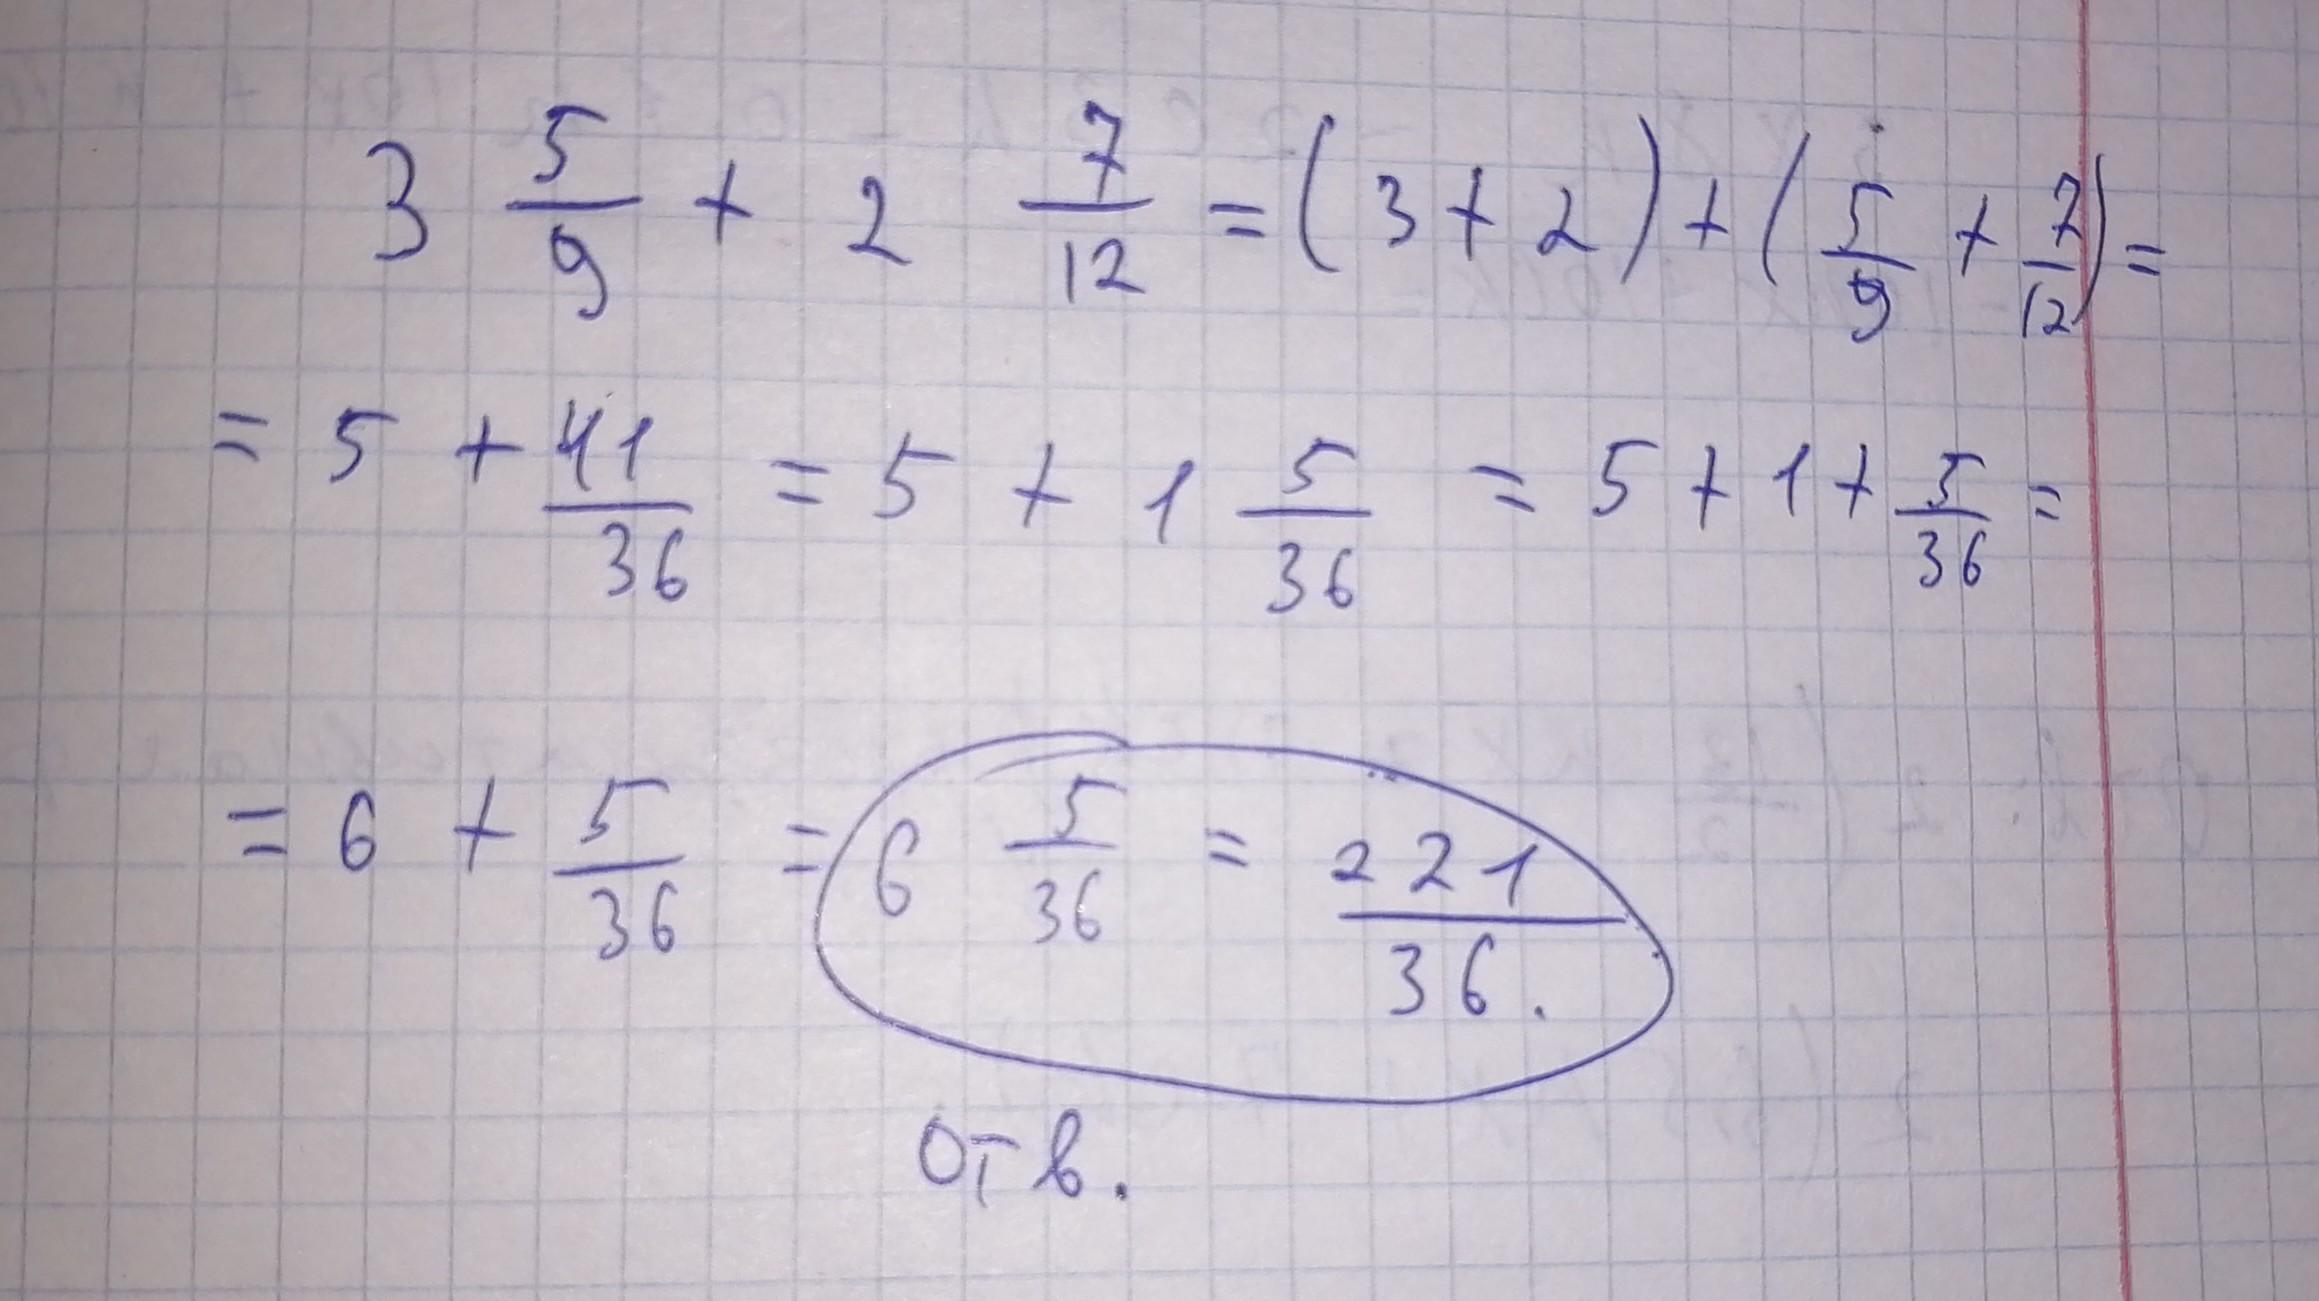 3 5/9 + 2 7/12 = (3 + 2) + (5/9 + 7/12) =
= 5 + 41/36 = 5 + 1 5/36 = 5 + 1 + 5/36 =
= 6 + 5/36 = 6 5/36 = 221/36.
Отв.